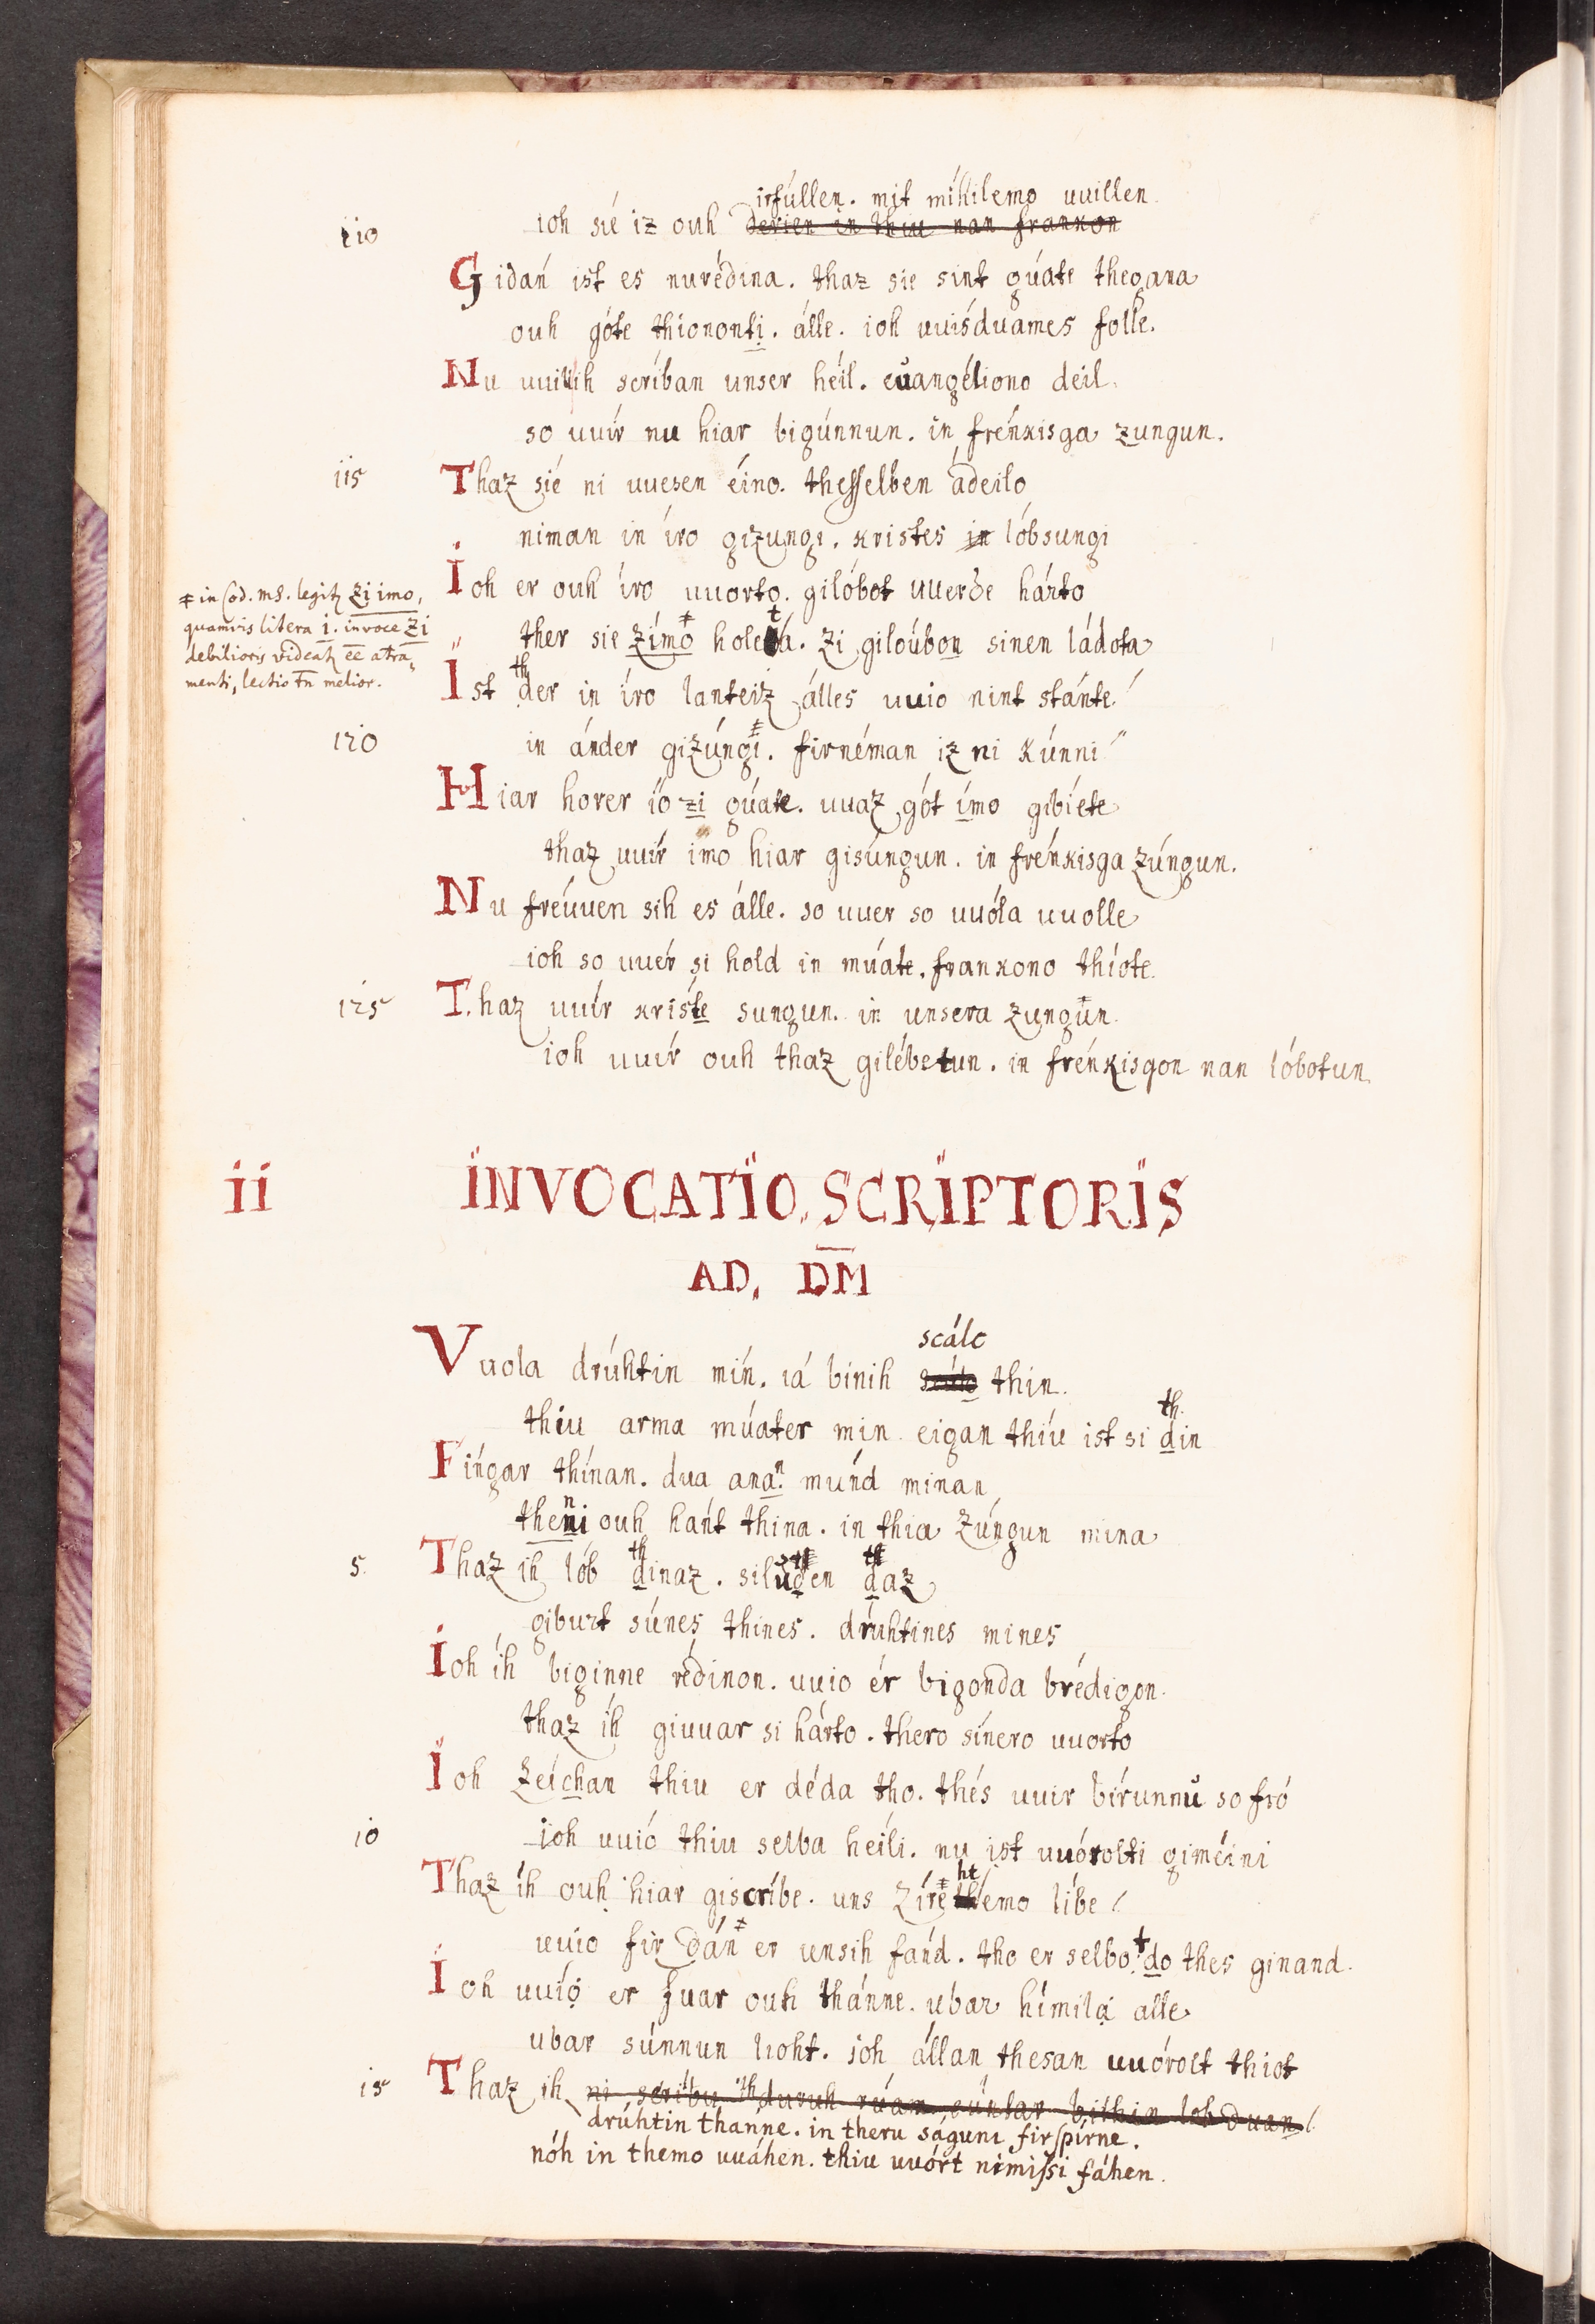 irfúllen. mit míhilemo uuillen.
110 ioh sié iz ouh derien in thiu nan frankon
Gidań ist es nurédina. thaz sie sint gúate thegana
ouh góte thíononti. álle. ioh uuiśduames folle.
Nu uuill ih scríban unser héil. euangéliono deil.
so uuír nu hiar bigúnnun. in frénkisga zungun.
115 Thaz sié ni uuesen éino. thesselben ádeilo
niman in íro gizungi. kristes in lóbsungi
Ioh er ouh íro uuorto. gilóbot uuerde hárto
ther sie zímo holeta. zi giloúbon sinen ládota
‡ in Cod. ms. legitz zi imo,
quamvis litera i. in voce zi
debilioris videatz ee atra,
menti, lectio tn melior.
th
Ist der in íro lanteiz álles uuio nint stánte!
120 in ánder gizúngi. firnéman iz ni kúnni
Hiar horer ío zi gúate. uuaz gót ímo gibíete
thaz uuír imo hiar gisúngun. in frénkisga zúngun.
Nu freúuen sih es álle. so uuer so uuóla uuolle
ioh so uuér si hold in múate. frankono thíote.
125 Thaz uuír kriśte sungun. in unsera zungun.
ioh uuír ouh thaz gilébetun. in frénkisgon nan lóbotun.
ii INVOCATIO. SCRIPTORIS
AD. DM
scálc
Vuola drúhtin mín. iá bínih thin.
th.
thiu arma múater min. eigan thíu ist si din
Fíngar thínan. dua anan. múnd minan
n
theni ouh hańt thina. in thia zúngun mina
th th
5. Thaz ih lób dinaz. si luden daz
giburt súnes thines. drúhtines mines
Ioh íh biginne rédinon. uuio ér bigonda brédigon.
thaz íh giuuar si hárto. thero sínero uuorto
Ioh zeíchan thiu er déda tho. thés uuir bírunnu so fró
10 ioh uuió thiu selba heíli. nu ist uuórolti giméini
ht
Thaz íh ouh hiar giscríbe. uns zí rethemo líbe
uuio fir dán er unsih fańd. tho er selbo do thes ginand.
Ioh uuío er fuar ouh thánne. ubar hímila alle
ubar súnnun lioht. ioh állan thesan uuórolt thiot
15 Thaz ih ni scríbu thuruh rúam suntar bithin lob duan
drúhtin thanne. in theru ságuni firspírne.
nóh in themo uuáhen. thiu uuórt nimissi fáhen.